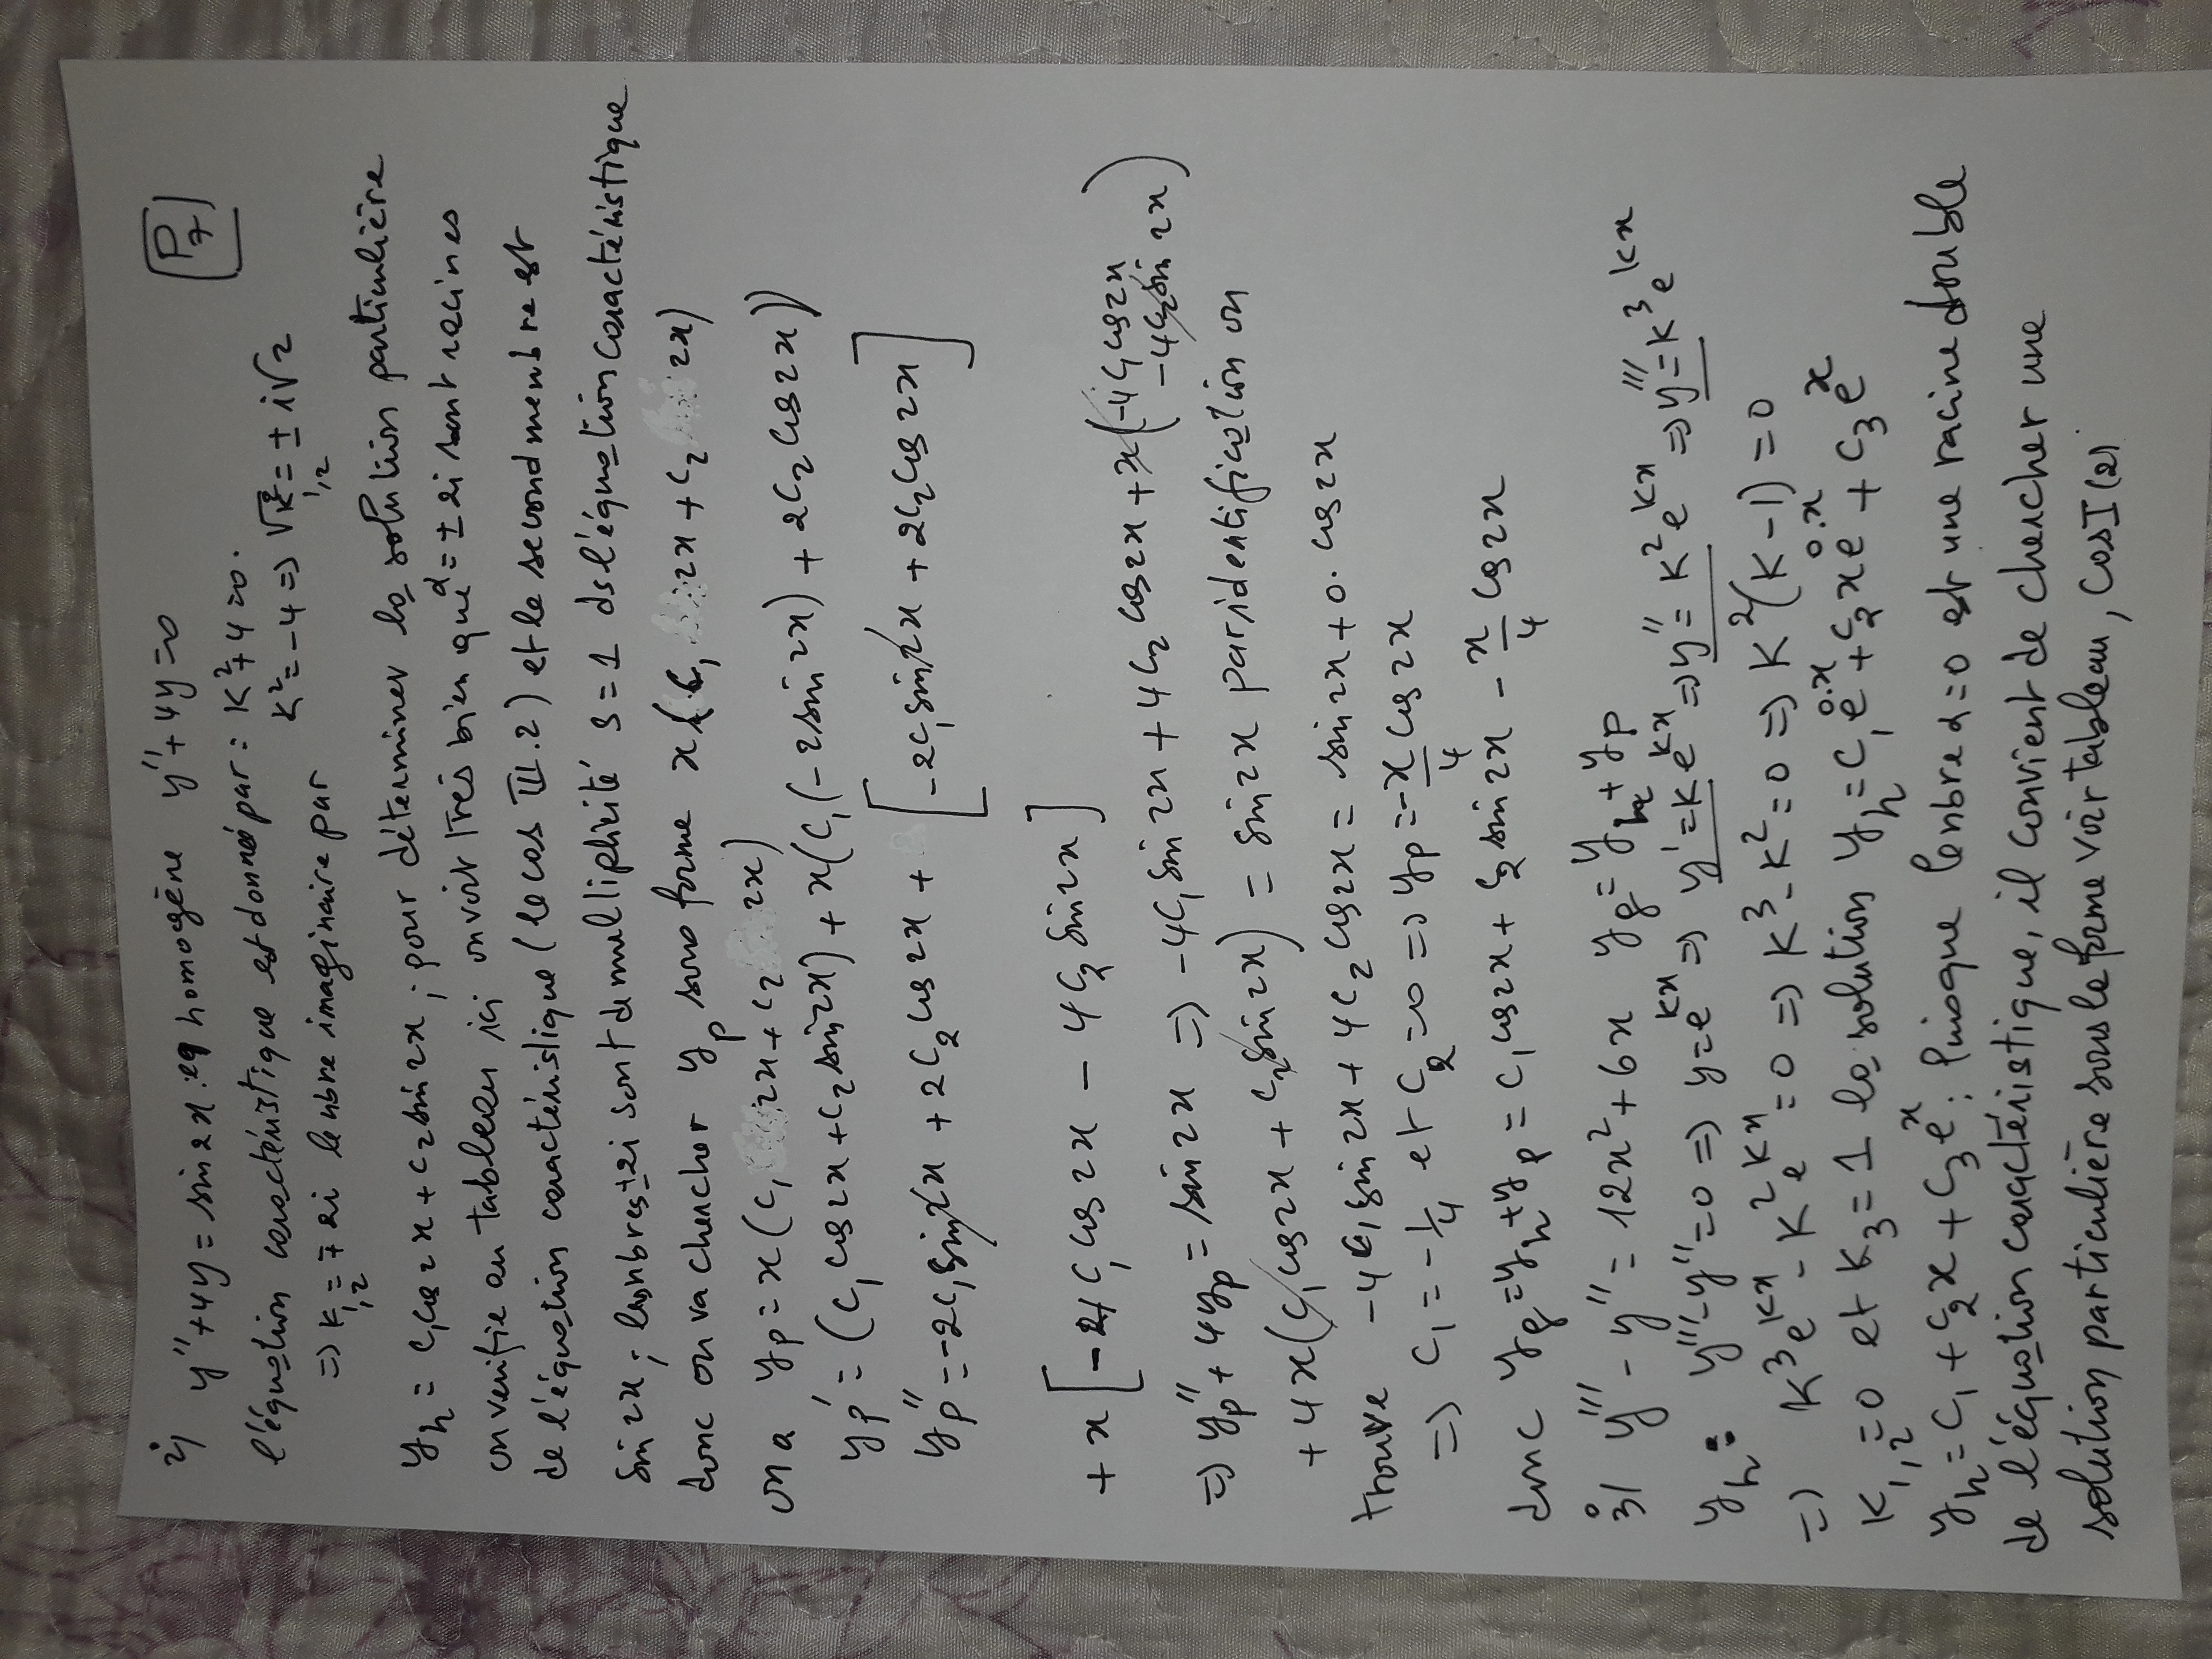 P7
2) y'' + 4y = sin 2x : eq homogène y'' + 4y = 0
l'équation caractéristique est donné par : K² + 4 = 0.
K² = -4 => √K² = ± i√2
1,2
=> K1,2 = ∓ 2i le nbre imaginaire par
yh = c1 cos 2x + c2 sin 2x ; pour déterminer la solution particulière
on verifie au tableau ici on voit très bien que α = ± 2i sont racines
de l'équation caractéristique (le cas III.2) et le second membre est
sin 2x ; les nbres ±2i sont de multiplicité s = 1 ds l'équation caractéristique
donc on va chercher yp sous forme x(c1 2x + c2 2x)
on a yp = x(c1 2x + c2 2x)
yp' = (c1 cos 2x + c2 sin 2x) + x(c1(-2 sin 2x) + 2c2 cos 2x))
yp'' = -2c1 sin 2x + 2c2 cos 2x + [-2c1 sin 2x + 2c2 cos 2x]
+ x[-4c1 cos 2x - 4c2 sin 2x]
=> yp'' + 4yp = sin 2x => -4c1 sin 2x + 4c2 cos 2x + x(-4c1 cos 2x - 4c2 sin 2x)
+ 4x(c1 cos 2x + c2 sin 2x) = sin 2x par identification on
trouve -4c1 sin 2x + 4c2 cos 2x = sin 2x + 0. cos 2x
=> c1 = -1/4 et c2 = 0 => yp = -x/4 cos 2x
donc yg = yh + yp = c1 cos 2x + c2 sin 2x - x/4 cos 2x
3) y''' - y'' = 12x² + 6x yg = yh + yp
yh : y''' - y'' = 0 => y = e^kx => y' = k e^kx => y'' = k² e^kx => y''' = k³ e^kx
=> K³e^kx - K²e^kx = 0 => K³ - K² = 0 => K²(K-1) = 0
K1,2 = 0 et K3 = 1 la solution yh = c1 e^0.x + c2 x e^0.x + c3 e^x
yh = c1 + c2 x + c3 e^x : Puisque le nbre α = 0 est une racine double
de l'équation caractéristique, il convient de chercher une
solution particulière sous le forme voir tableau, cas I (2)